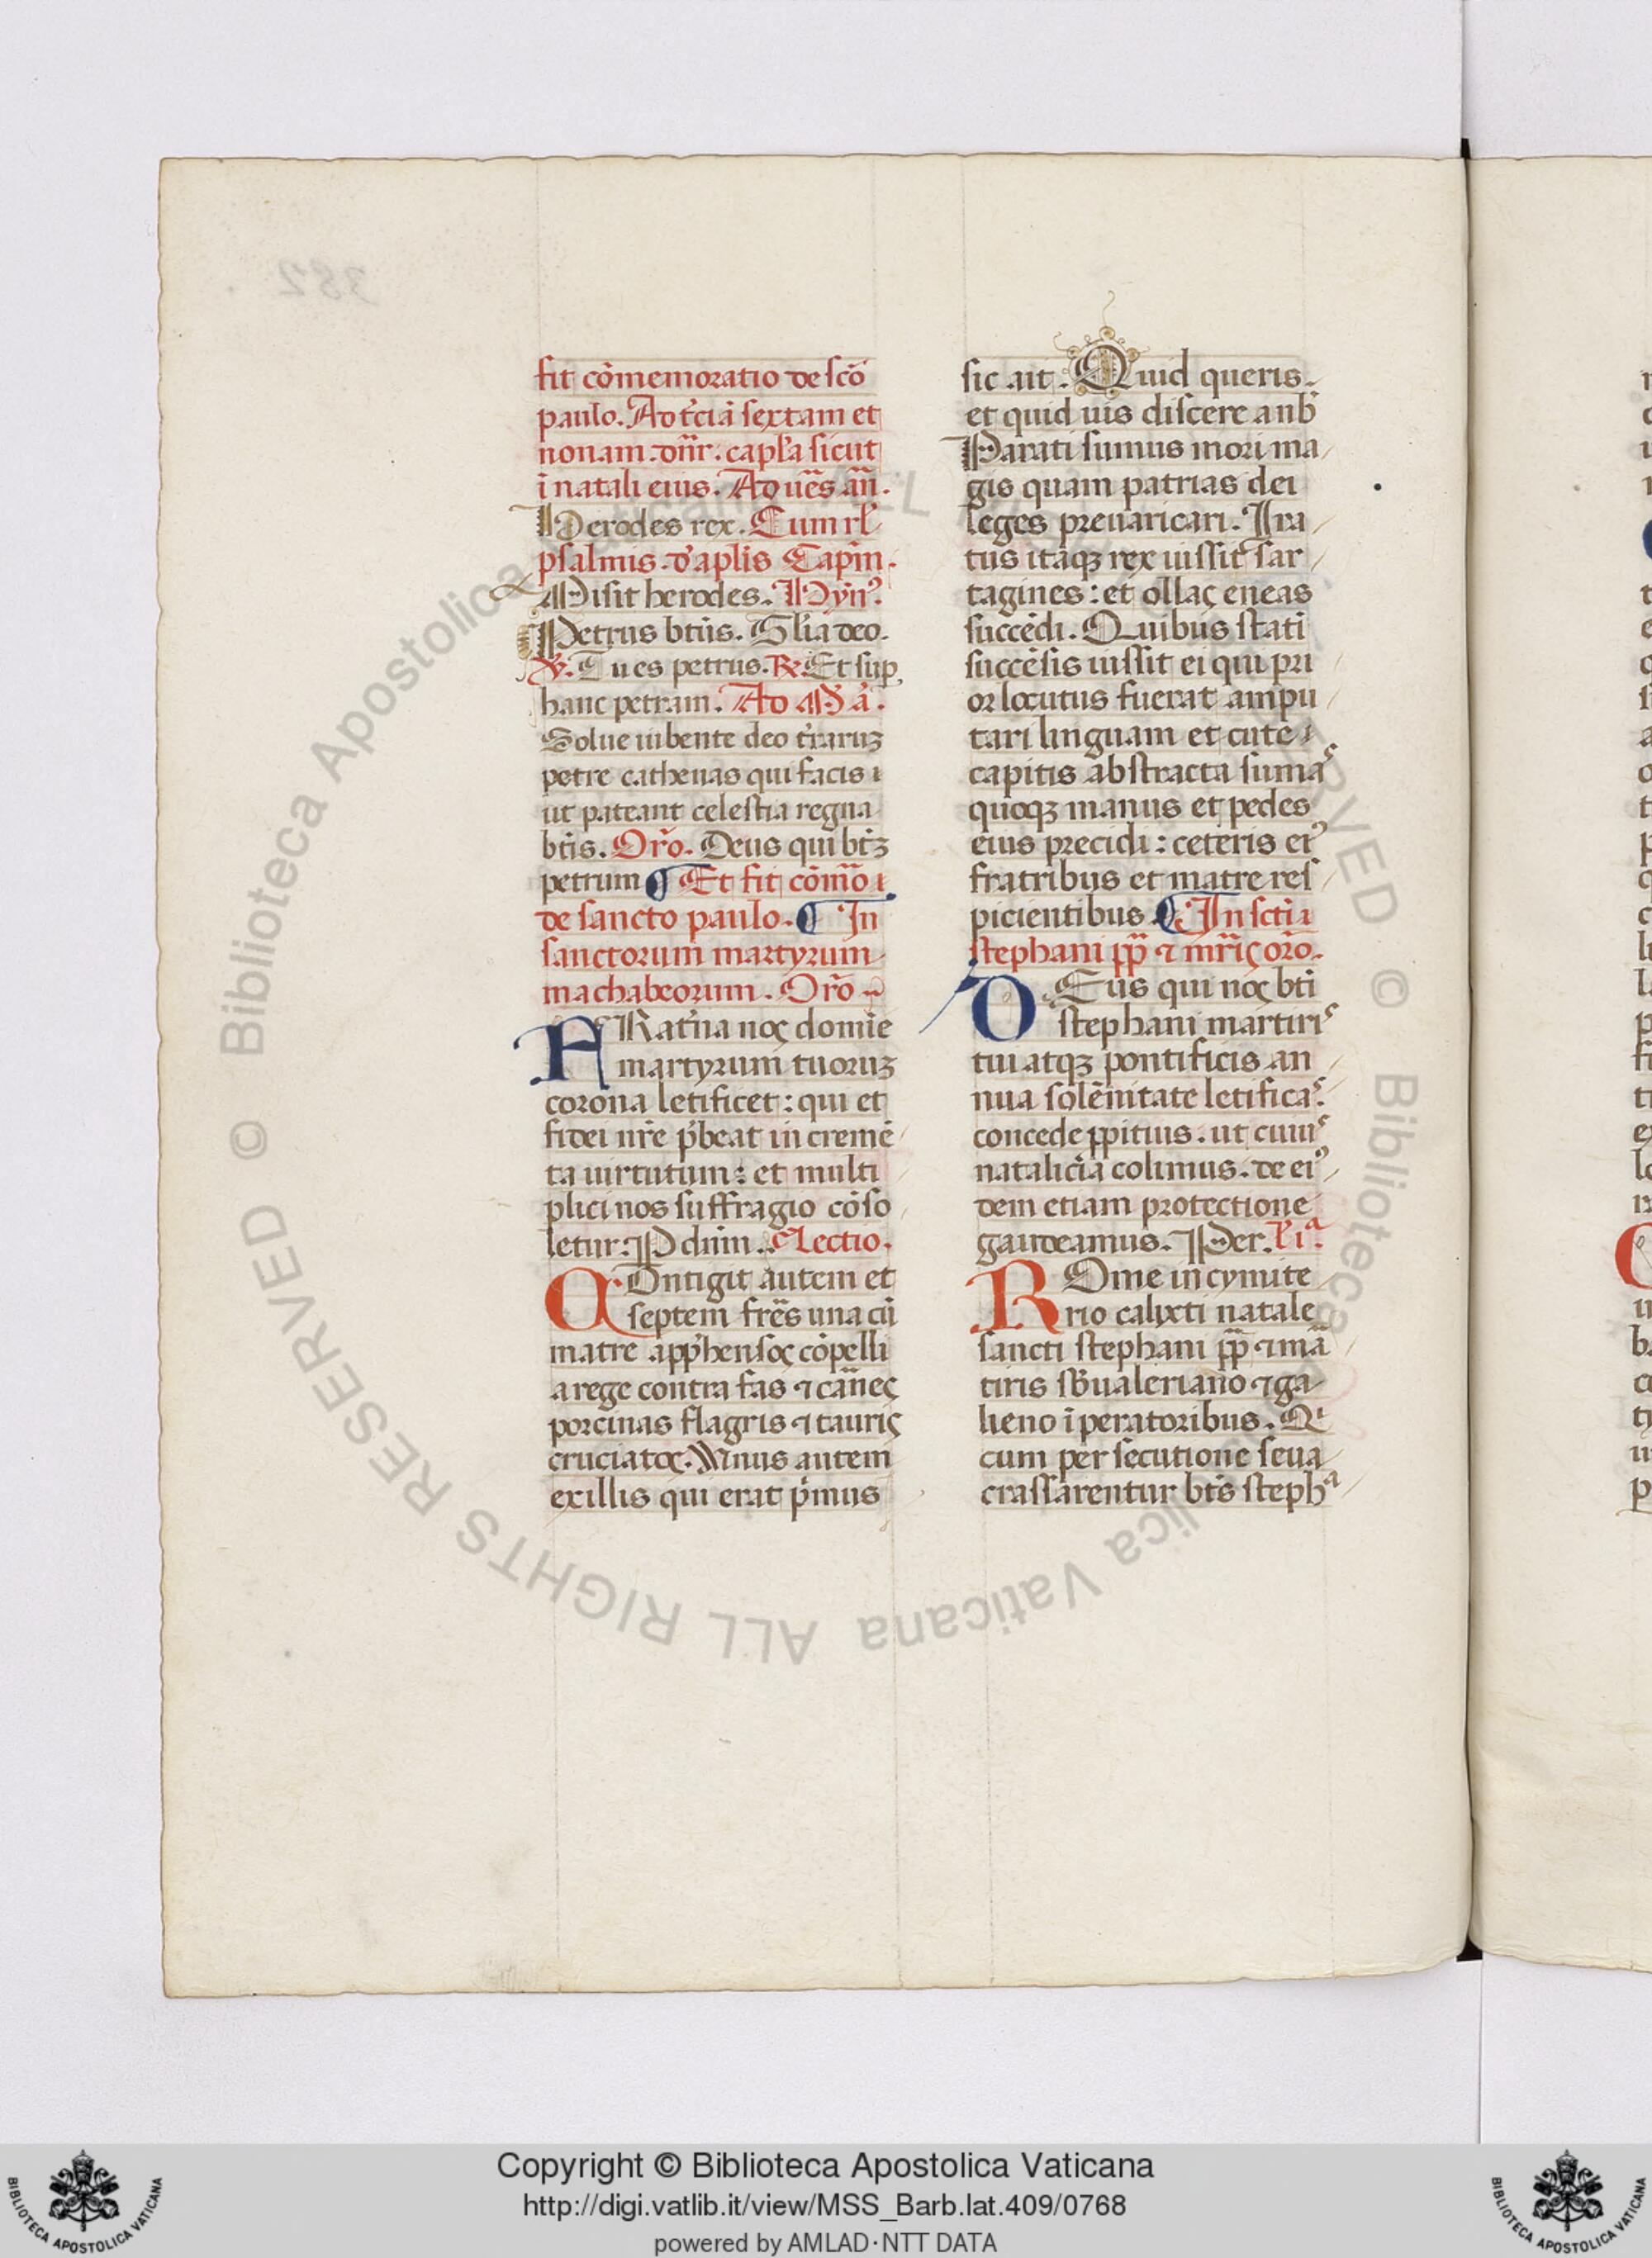 fit co͞memoratio de sco͞
paulo. Ad t͛ciā sextam et
nonam. dn͞r. capl̓a sicut
ī natali eius. Ad ue͞s an͞.
Herodes rex. Cum rl̓
psalmis. d̓ apl̓is Capi͞m.
Misit herodes. Hyn̓ꝰ.
Petrus bt͞us. Gl̓ia deo.
℣. Tu es petrus. ℟. Et suꝑ
hanc petram. Ad M a͞.
Solue iubente deo t͛raruꝫ
petre cathenas qui facis
ut pateant celestia regna
bt͞is. Or͞o. Deus qui bt͞ꝫ
petrum ¶ Et fit co͞m͞o
de sancto paulo. ¶ In
sanctorum martyrum
machabeorum. Or͞o
FRat͛na nos domi͞e
martyrum tuoruꝫ
corona letificet: qui et
fidei nr͞e p̓beat in creme͞
ta uirtutum: et multi
plici nos suffragio co͞so
letur: P dn͞m. Lectio.
COntigit autem et
septem fre͞s una cū
matre app̓hensos co͞pelli
a rege contra fas ⁊ ca͞nes
porcinas flagris ⁊ tauris
cruciatos. Vnus autem
ex illis qui erat p̓mus
sic ait. Quid queris.
et quid uis discere a nob̓
Parati sumus mori ma
gis quam patrias dei
leges preuaricari. Ira
tus itaqꝫ rex iussit sar
tagines: et ollas eneas
succe͞di. Quibus stati͞
succe͞sis iussit ei qui pri
or locutus fuerat ampu
tari linguam et cute
capitis abstracta sumas
quoqꝫ manus et pedes
eius precidi: ceteris eiꝰ
fratribus et matre res
picientibus ¶ In sct͞i
stephani pp͞ ⁊ mr͞is or͞o.
DEus qui nos bt͞i
stephani martiris
tui atqꝫ pontificis an
nua sole͞nitate letificas.
concede ꝓpitius. ut cuius
natalicia colimus. de eiꝰ
dem etiam protectione
gaudeamus. Per. lia.
ROme in cymite
rio calyxti natale
sancti stephani pp͞ ⁊ ma͞
tiris sb̓ ualeriano ⁊ ga
lieno i͞peratoribus. Qi
cum per secutione seua
crassarentur bt͞s stepha
Copyright © Biblioteca Apostolica Vaticana
http://digi.vatlib.it/view/MSS_Barb.lat.409/0768
powered by AMLAD·NTT DATA